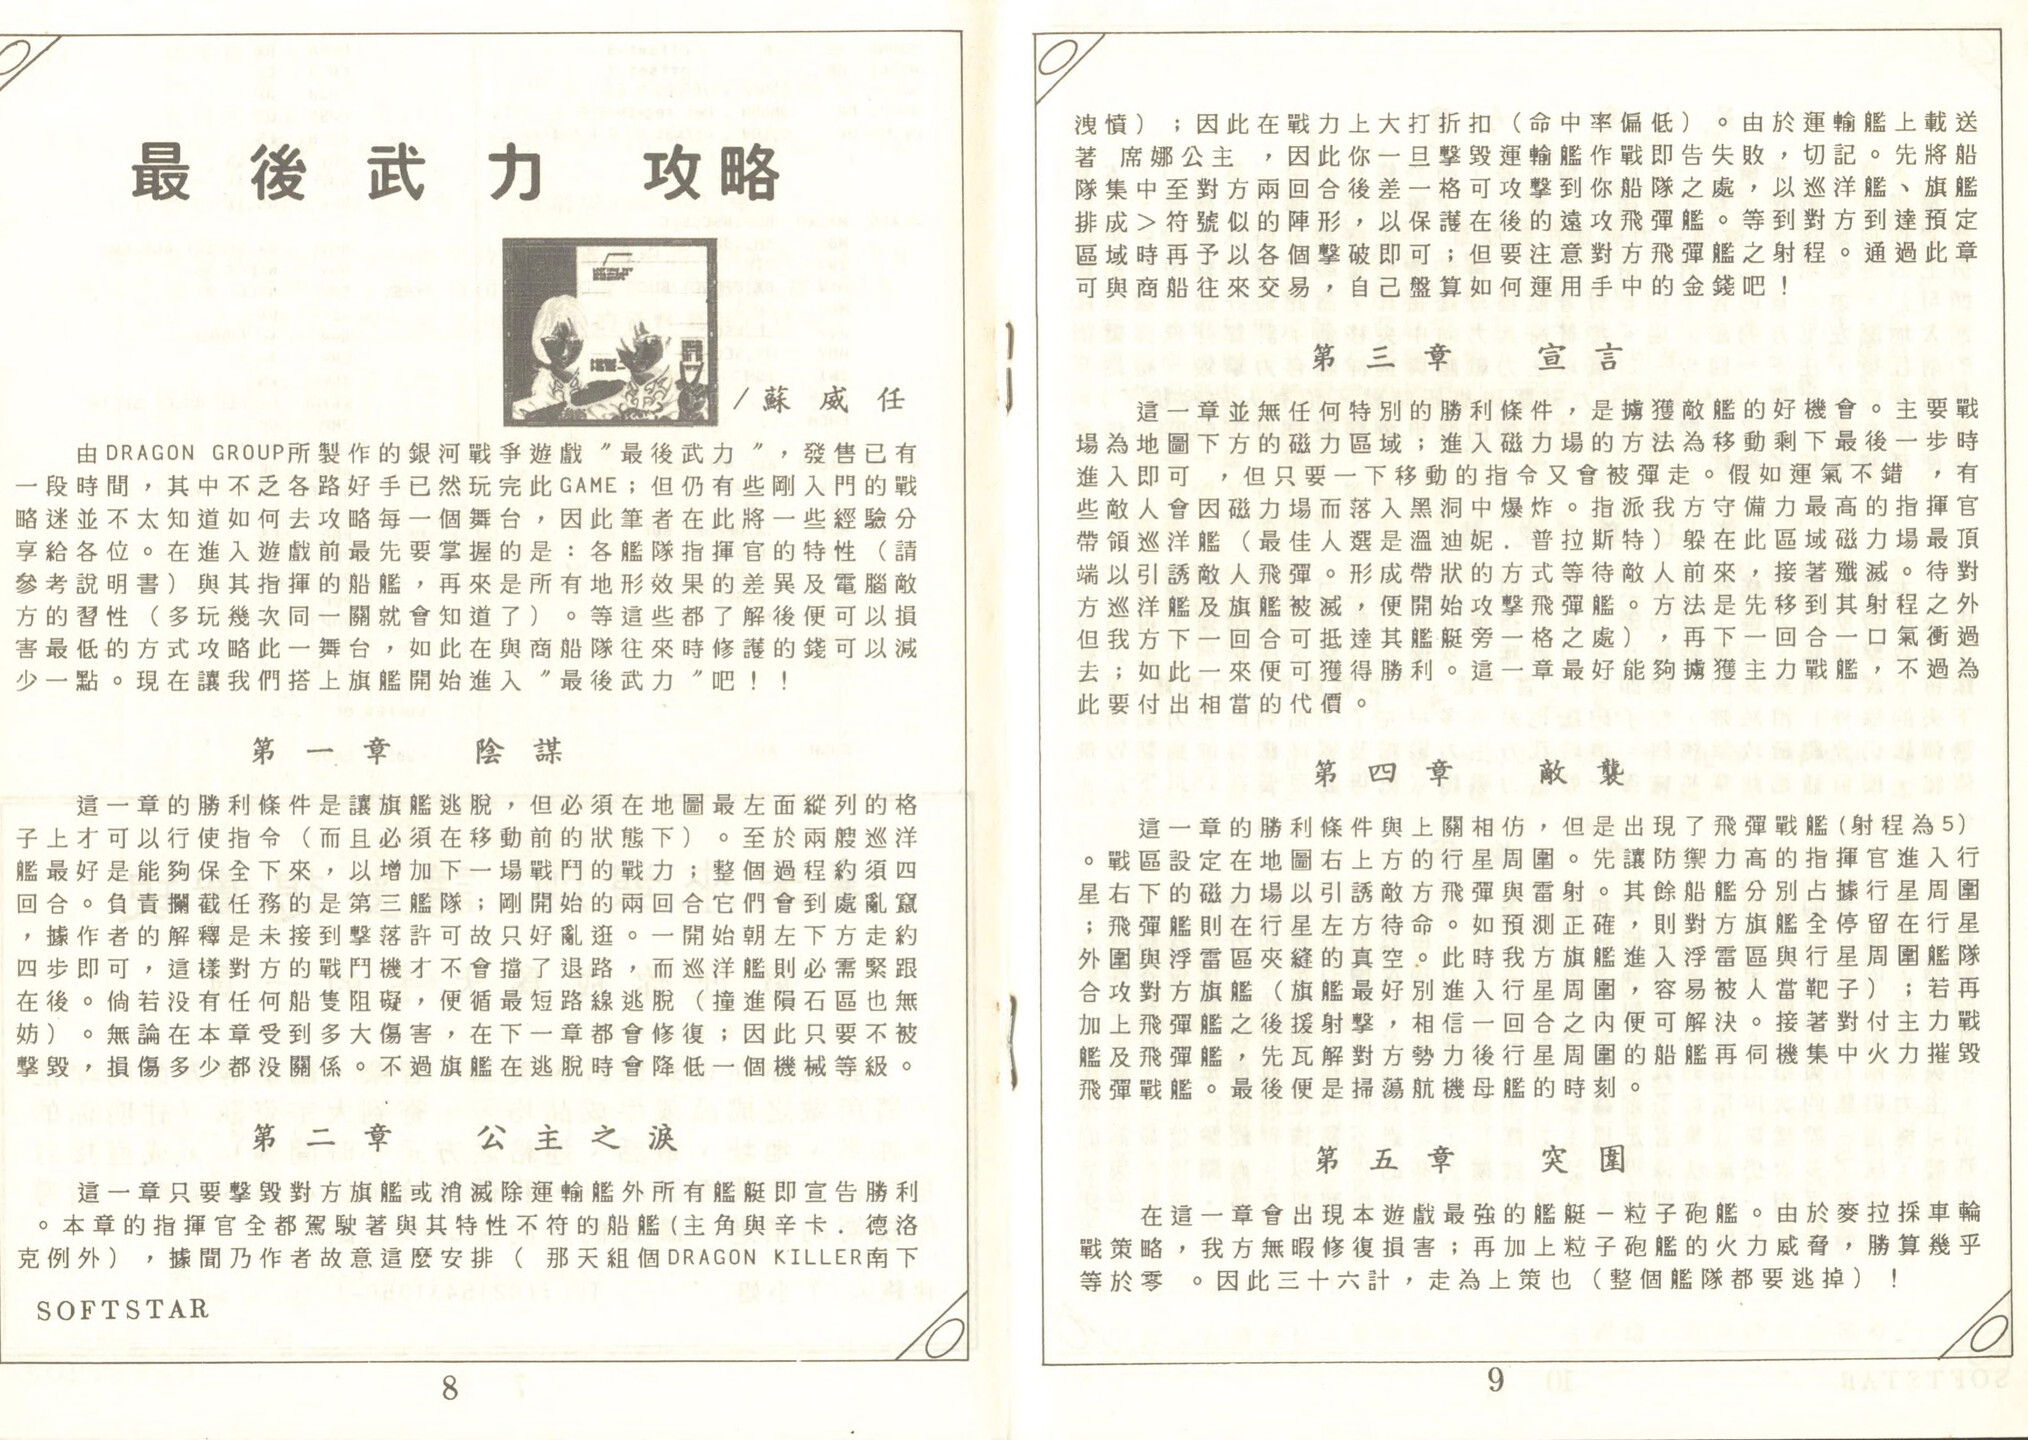 最後武力 攻略
/蘇威任
由DRAGON GROUP所製作的銀河戰爭遊戲〞最後武力〞，發售已有
一段時間，其中不乏各路好手已然玩完此GAME；但仍有些剛入門的戰
略迷並不太知道如何去攻略每一個舞台，因此筆者在此將一些經驗分
享給各位。在進入遊戲前最先要掌握的是：各艦隊指揮官的特性（請
參考說明書）與其指揮的船艦，再來是所有地形效果的差異及電腦敵
方的習性（多玩幾次同一關就會知道了）。等這些都了解後便可以損
害最低的方式攻略此一舞台，如此在與商船隊往來時修護的錢可以減
少一點。現在讓我們搭上旗艦開始進入〞最後武力〞吧！！
第一章 陰謀
這一章的勝利條件是讓旗艦逃脫，但必須在地圖最左面縱列的格
子上才可以行使指令（而且必須在移動前的狀態下）。至於兩艘巡洋
艦最好是能夠保全下來，以增加下一場戰鬥的戰力；整個過程約須四
回合。負責攔截任務的是第三艦隊；剛開始的兩回合它們會到處亂竄
，據作者的解釋是未接到擊落許可故只好亂逛。一開始朝左下方走約
四步即可，這樣對方的戰鬥機才不會擋了退路，而巡洋艦則必需緊跟
在後。倘若沒有任何船隻阻礙，便循最短路線逃脫（撞進隕石區也無
妨）。無論在本章受到多大傷害，在下一章都會修復；因此只要不被
擊毀，損傷多少都沒關係。不過旗艦在逃脫時會降低一個機械等級。
第二章 公主之淚
這一章只要擊毀對方旗艦或消滅除運輸艦外所有艦艇即宣告勝利
。本章的指揮官全都駕駛著與其特性不符的船艦(主角與辛卡．德洛
克例外），據聞乃作者故意這麼安排（ 那天組個DRAGON KILLER南下
SOFTSTAR
8
洩憤）；因此在戰力上大打折扣（命中率偏低）。由於運輸艦上載送
著 席娜公主 ，因此你一旦擊毀運輸艦作戰即告失敗，切記。先將船
隊集中至對方兩回合後差一格可攻擊到你船隊之處，以巡洋艦、旗艦
排成＞符號似的陣形，以保護在後的遠攻飛彈艦。等到對方到達預定
區域時再予以各個擊破即可；但要注意對方飛彈艦之射程。通過此章
可與商船往來交易，自己盤算如何運用手中的金錢吧！
第三章 宣言
這一章並無任何特別的勝利條件，是擄獲敵艦的好機會。主要戰
場為地圖下方的磁力區域；進入磁力場的方法為移動剩下最後一步時
進入即可 ，但只要一下移動的指令又會被彈走。假如運氣不錯 ，有
些敵人會因磁力場而落入黑洞中爆炸。指派我方守備力最高的指揮官
帶領巡洋艦（最佳人選是溫迪妮．普拉斯特）躲在此區域磁力場最頂
端以引誘敵人飛彈。形成帶狀的方式等待敵人前來，接著殲滅。待對
方巡洋艦及旗艦被滅，便開始攻擊飛彈艦。方法是先移到其射程之外
但我方下一回合可抵達其艦艇旁一格之處），再下一回合一口氣衝過
去；如此一來便可獲得勝利。這一章最好能夠擄獲主力戰艦，不過為
此要付出相當的代價。
第四章 敵襲
這一章的勝利條件與上關相仿，但是出現了飛彈戰艦(射程為5）
。戰區設定在地圖右上方的行星周圍。先讓防禦力高的指揮官進入行
星右下的磁力場以引誘敵方飛彈與雷射。其餘船艦分別占據行星周圍
；飛彈艦則在行星左方待命。如預測正確，則對方旗艦全停留在行星
外圍與浮雷區夾縫的真空。此時我方旗艦進入浮雷區與行星周圍艦隊
合攻對方旗艦（旗艦最好別進入行星周圍，容易被人當靶子）；若再
加上飛彈艦之後援射擊，相信一回合之內便可解決。接著對付主力戰
艦及飛彈艦，先瓦解對方勢力後行星周圍的船艦再伺機集中火力摧毀
飛彈戰艦。最後便是掃蕩航機母艦的時刻。
第五章 突圍
在這一章會出現本遊戲最強的艦艇－粒子砲艦。由於麥拉採車輪
戰策略，我方無暇修復損害；再加上粒子砲艦的火力威脅，勝算幾乎
等於零 。因此三十六計，走為上策也（整個艦隊都要逃掉）！
9